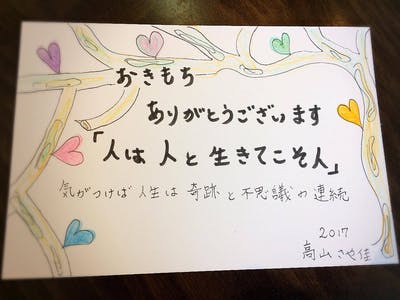 おきもち
ありがとうございます
「人は人と生きてこそ人」
気がつけば人生は奇跡と不思議の連続
2017
高山さや佳